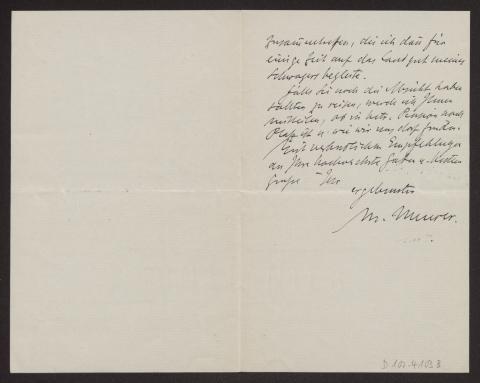 zusammentreffen, die ich dann für
einige Zeit auf das Landgut meines
Schwagers begleite.
Falls Sie noch die Absicht haben
sollten zu reisen, werde ich Ihnen
mittheilen, ob in betr. Pension noch
Platz ist u. wie wir uns dort finden.
Mit verbindlichen Empfehlungen
an Ihre hochverehrte Frau
Ihr
ergebenster
M. Meurer.
D.102.4.103 3